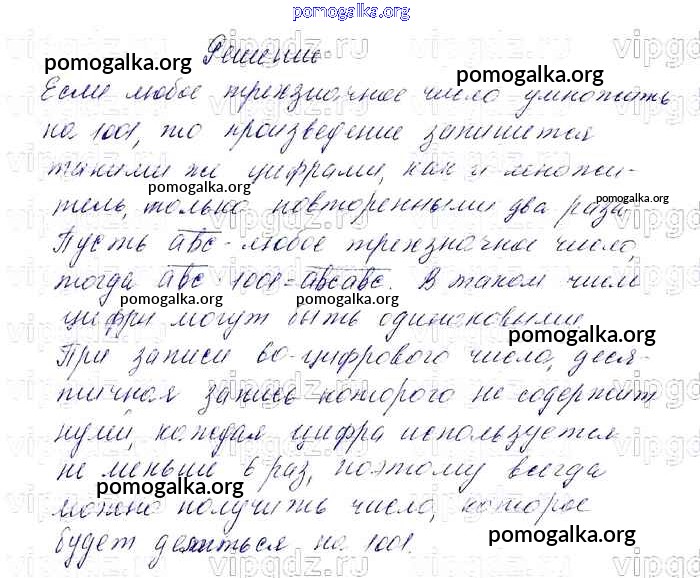 pomogalka.org
Решение
Если любое трехзначное число умножить
на 1001, то произведение запишется
такими же цифрами, как и множи-
тель, только повторенными два раза.
Пусть abc - любое трехзначное число,
тогда abc · 1001 = abcabc. В таком числе
цифры могут быть одинаковыми.
При записи 60-цифрового числа, деся-
тичная запись которого не содержит
нулей, каждая цифра используется
не меньше 6 раз, поэтому всегда
можно получить число, которое
будет делиться на 1001.
pomogalka.org
pomogalka.org
pomogalka.org
pomogalka.org
pomogalka.org
pomogalka.org
pomogalka.org
pomogalka.org
pomogalka.org